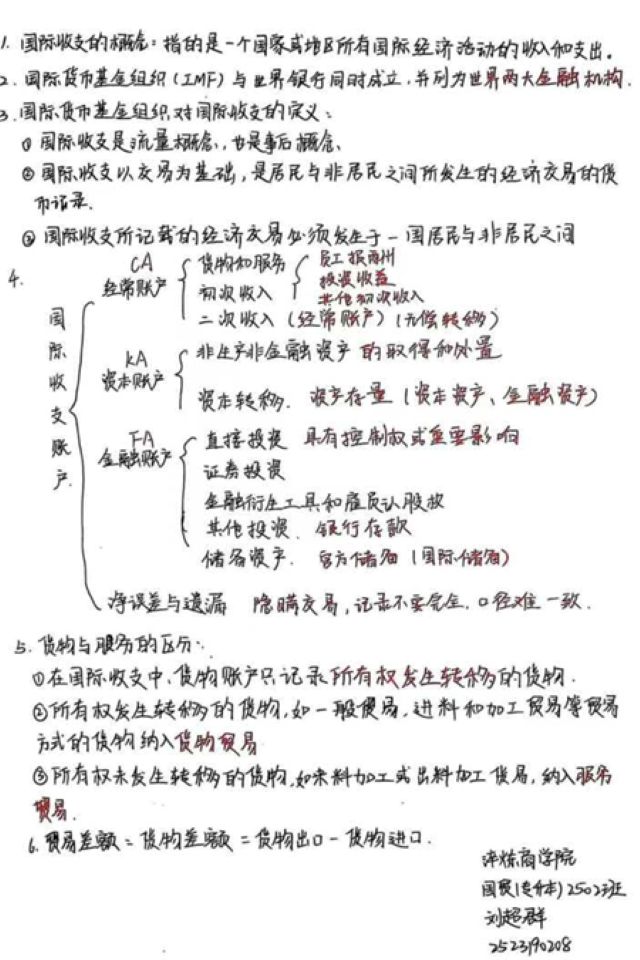 1. 国际收支的概念：指的是一个国家或地区所有国际经济活动的收入和支出.
2. 国际货币基金组织（IMF）与世界银行同时成立，并列为世界两大金融机构.
3. 国际货币基金组织对国际收支的定义：
① 国际收支是流量概念，也是事后概念、
② 国际收支以交易为基础，是居民与非居民之间所发生的经济交易的货
币记录.
③ 国际收支所记载的经济交易必须发生于一国居民与非居民之间
4.
国际收支账户
CA
经常账户
货物和服务
初次收入
员工报酬
投资收益
其他初次收入
二次收入（经常账户）（无偿转移）
KA
资本账户
非生产非金融资产的取得和处置
资本转移. 资产存量（资本资产、金融资产）
FA
金融账户
直接投资 具有控制权或重要影响
证券投资
金融衍生工具和雇员认股权
其他投资、银行存款
储备资产. 官方储备（国际储备）
净误差与遗漏 隐瞒交易，记录不要完全. 口径难一致.
5. 货物与服务的区分：
①在国际收支中，货物账户只记录所有权发生转移的货物.
②所有权发生转移的货物，如一般贸易，进料和加工贸易等贸易
方式的货物纳入货物贸易
③所有权未发生转移的货物，如来料加工或出料加工贸易，纳入服务
贸易.
6. 贸易差额 = 货物差额 = 货物出口 - 货物进口.
商学院
国贸（专升本）2502班
刘超群
2523190208